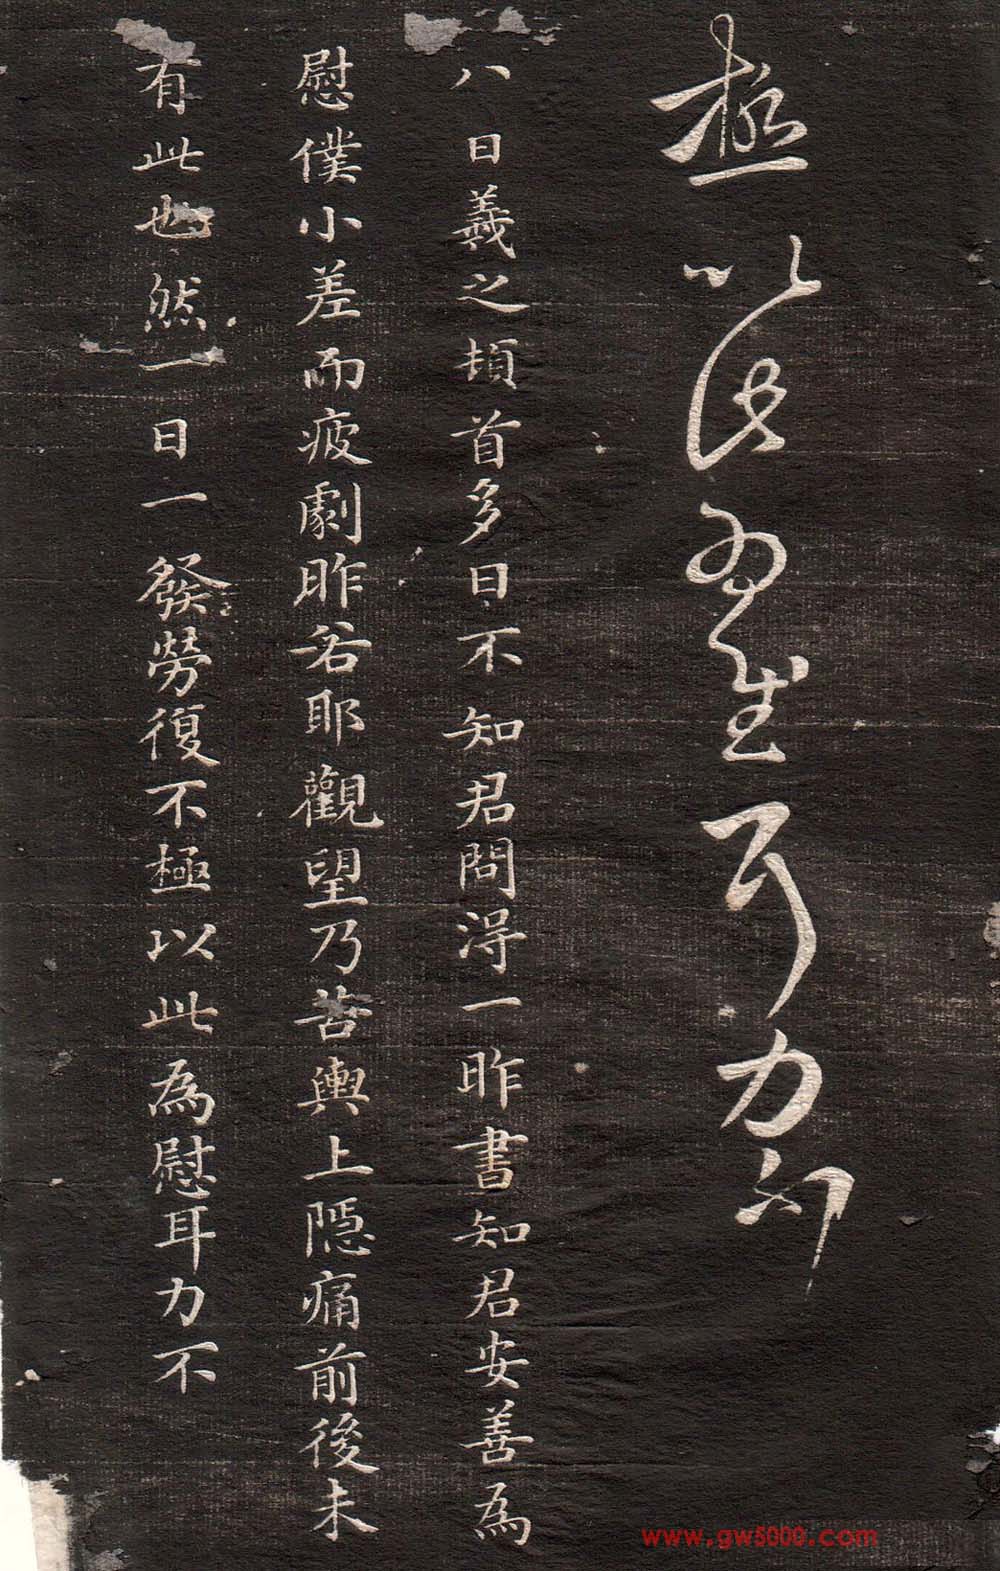 極以此為慰耳力不
八日羲之頓首多日不知君問得一昨書知君安善為
慰僕小差而疲劇昨若耶觀望乃苦輿上隱痛前後未
有此也然一日一發勞復不極以此為慰耳力不
www.gw5000.com